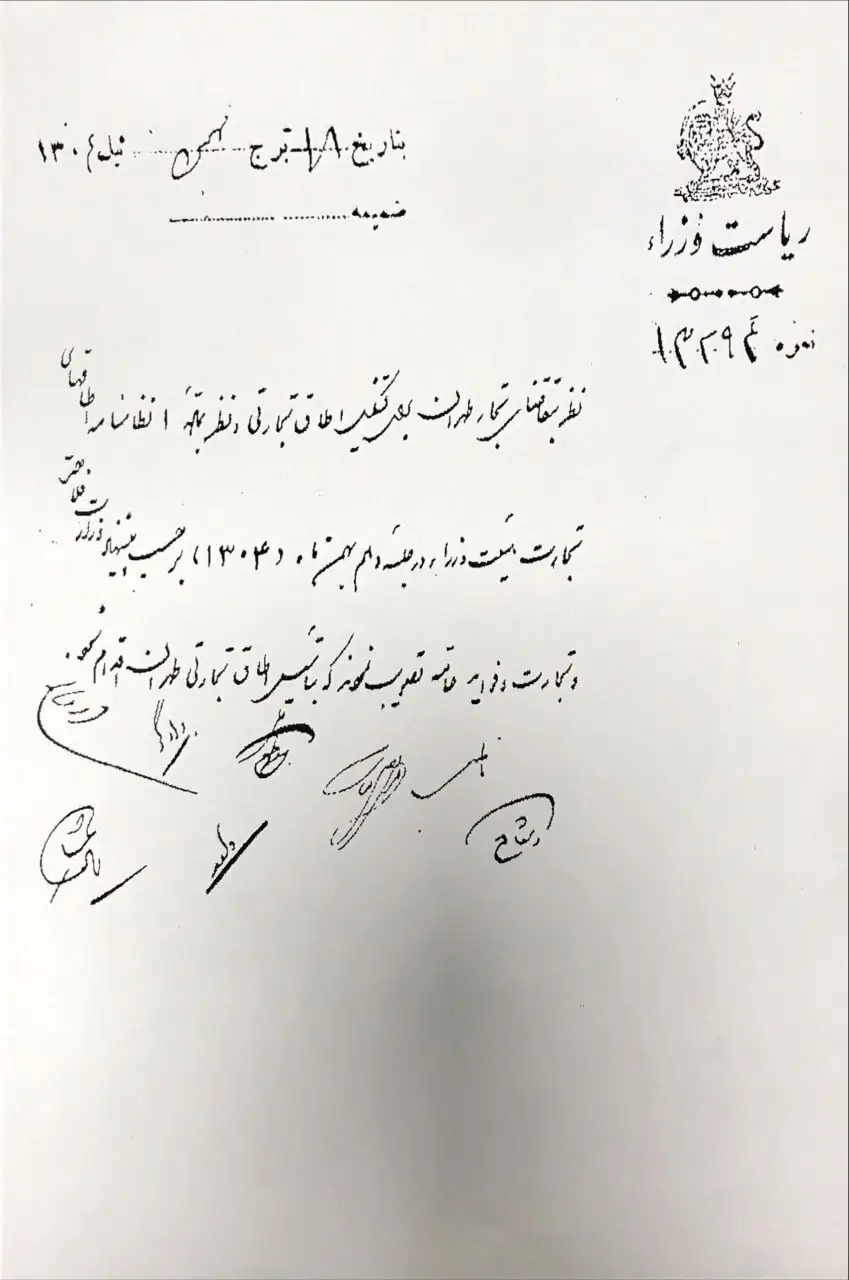 ریاست وزراء
نمره ۱۳۲۹۴
بتاریخ ۱۸ برج بهمن ئیل ۱۳۰۴
ضمیمه
نظر بتقاضای تجار طهران برای تشکیل اطاق تجارتی و نظر بماده ۱ نظامنامه اطاقهای
تجارت هیئت وزراء در جلسه دهم بهمن ماه (۱۳۰۴) بر حسب پیشنهاد وزارت فلاحت
و تجارت و فواید عامه تصویب نمودند که بتأسیس اطاق تجارتی طهران اقدام شود.